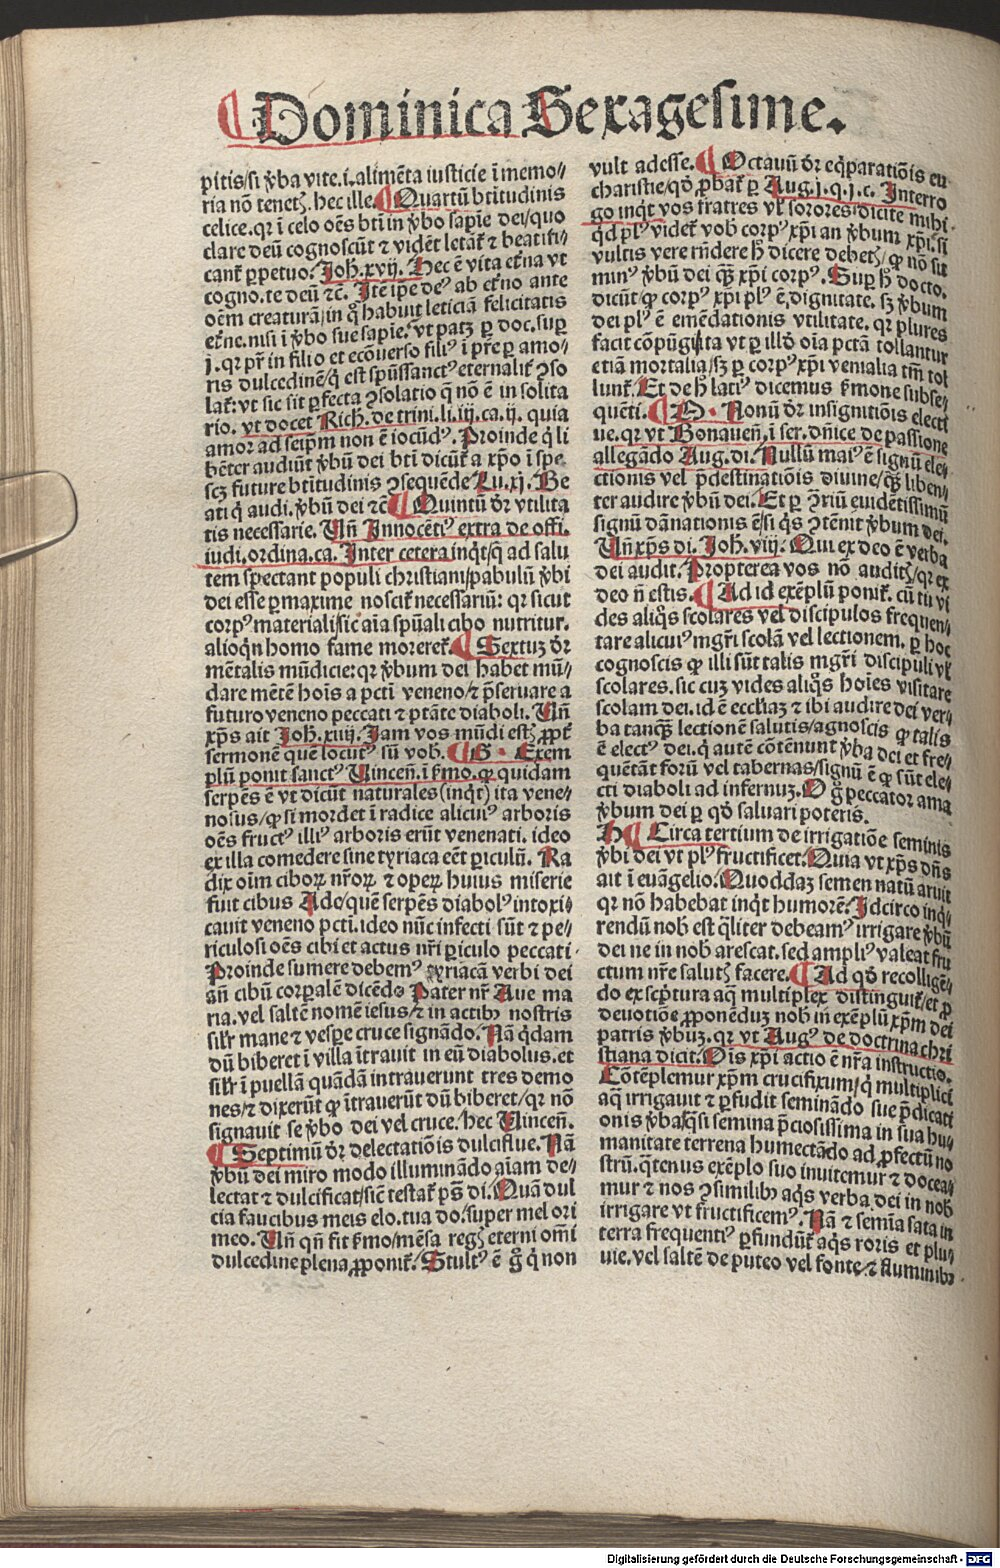 ¶ Dominica Sexagesime.
pitis/si ꝟba vite.i.alimēta iusticie ī memo⸗
ria nō tenetꝭ. hec ille. ¶ Quartū btītudinis
celice. qꝛ ī celo oēs btī in ꝟbo sapīe dei/quo
clare deū cognoscūt ⁊ vidēt letāt᷑ ⁊ beatifi⸗
cant᷑ ꝑpetuo. Joh̄.xvij. Hec ē vita et̄na vt
cogno. te deū ⁊c̄. Itē ip̄e deꝰ ab et̄no ante
oēm creaturā/in q̊ habuit leticiā felicitatis
et̄ne. nisi ī ꝟbo sue sapīe. vt patꝫ ꝑ doc. suꝑ
j. qꝛ pr̄ in filio et ecōuerso filiꝰ ī pr̄e ꝑ amo⸗
ris dulcedinē/q̇ est sp̄ūssanctꝰ eternalit᷑ ꝯso
lat᷑: vt sic sit ꝑfecta ꝯsolatio q̄ nō ē in solita
rio. vt docet Rich̄. de trini. li. iij. ca. ij. quia
amor ad seip̄m non ē iocūdꝰ. Proinde q̇ li
bēter audiūt ꝟbū dei btī dicūt᷑ a xp̄o ī spe
scꝫ future btītudinis ꝯsequēde Lu. xj. Be
ati q̇ audi. ꝟbū dei ⁊c̄ ¶ Quintū dr̄ vtilita
tis necessarie. Un̄ Innocētiꝰ extra de offi.
iudi. ordina. ca. Inter cetera inq̇t/q̄ ad salu
tem spectant populi christiani/pabulū ꝟbi
dei esse ꝑmaxime noscit᷑ necessariū: qꝛ sicut
corpꝰ materiali/sic aīa spūali cibo nutritur.
alioq̇n homo fame moreret᷑. ¶ Sextuꝫ dr̄
mētalis mūdicie: qꝛ ꝟbum dei habet mū⸗
dare mētē hoīs a pctī veneno/⁊ p̄seruare a
futuro veneno peccati ⁊ ptāte diaboli. Un̄
xp̄s ait Joh̄. xiiij. Jam vos mūdi estꝭ ꝓpt̄
sermonē quē locutꝰ sū vob̄. ¶ G · Exem
plū ponit sanctꝰ Uincen̄. ī ẜmo. ꝙ quidam
serpēs ē vt dicūt naturales (inq̇t) ita vene⸗
nosus/ꝙ si mordet ī radice alicuiꝰ arboris
oēs fructꝰ illiꝰ arboris erūt venenati. ideo
ex illa comedere sine tyriaca eēt ꝑiculū. Ra
dix oīm ciboꝝ nr̄oꝝ ⁊ opeꝝ huius miserie
fuit cibus Ade/quē serpēs diabolꝰ intoxi⸗
cauit veneno pcti. ideo nūc infecti sūt ⁊ pe⸗
riculosi oēs cibi et actus nr̄i ꝑiculo peccati.
Proinde sumere debemꝰ tyriacā verbi dei
an̄ cibū corꝑalē dicēdo Pater nr̄ Aue ma
ria. vel saltē nomē iesus/⁊ in actibꝫ nostris
sil̄r mane ⁊ vespe cruce signādo. Nā q̇dam
dū biberet ī villa ītrauit in eū diabolus. et
sil̄r ī puellā quādā intrauerunt tres demo
nes/⁊ dixerūt ꝙ ītrauerūt dū biberet/qꝛ nō
signauit se ꝟbo dei vel cruce. hec Uincen̄.
¶ Septimū dr̄ delectatiōis dulciflue. Nā
ꝟbū dei miro modo illuminādo aīam de⸗
lectat ⁊ dulcificat/sīc̄ testat᷑ ps̄ di. Quā dul
cia faucibus meis elo. tua do. super mel ori
meo. Un̄ qn̄ fit ẜmo/mēsa regꝭ eterni om̄i
dulcedine plena ꝓponit᷑. Stultꝰ ē g̊ q̇ non
vult adesse. ¶ Octauū dr̄ eq̇ꝑatiōis eu
charistie/qd̓ ꝓbat᷑ ꝑ Aug. j. q. j. c. Interro
go inq̇t vos fratres vl̓ sorores/dicite mihi.
q̇d plꝰ videt᷑ vob̄ corpꝰ xp̄i an ꝟbum xp̄i. si
vultis vere rn̄dere h̄ dicere debetꝭ/ꝙ nō sit
minꝰ ꝟbū dei qꝫ xp̄i corpꝰ. Suꝑ h̄ docto.
dicūt ꝙ corpꝰ xp̄i plꝰ ē dignitate. sꝫ ꝟbum
dei plꝰ ē emēdationis vtilitate. qꝛ plures
facit cōpūgi/ita vt ꝑ illd̓ oīa pctā tollantur
etiā mortalia/sꝫ ꝑ corpꝰ xp̄i venialia tm̄ tol
lunt᷑. Et de h̄ latiꝰ dicemus ẜmone subse⸗
quēti. ¶ O · Nonū dr̄ insignitiōis electi
ue. qꝛ vt Bonauen̄. ī ser. dn̄ice de passione
allegādo Aug. di. Nullū maiꝰ ē signū ele⸗
ctionis vel p̄destinatiōis diuine/qꝫ liben⸗
ter audire ꝟbū dei. Et ꝑ ꝯriū euidētissimū
signū dānationis ē/si q̇s ꝯtēnit ꝟbum dei.
Un̄ xp̄s di. Joh̄. viij. Qui ex deo ē verba
dei audit. Propterea vos nō auditꝭ/qꝛ ex
deo n̄ estis. ¶ Ad id exēplū ponit᷑. cū tu vi
des aliq̄s scolares vel discipulos frequen⸗
tare alicuiꝰ mgr̄i scolā vel lectionem. ꝑ hoc
cognoscis ꝙ illi sūt talis mgr̄i discipuli vl̓
scolares. sic cuꝫ vides aliq̄s hoīes visitare
scolam dei. id ē eccl̓iaꝫ ⁊ ibi audire dei ver⸗
ba tanqꝫ lectionē salutis/agnoscis ꝙ talis
ē electꝰ dei. q̇ autē cōtēnunt ꝟba dei et fre⸗
quētāt forū vel tabernas/signū ē ꝙ sūt ele⸗
cti diaboli ad infernuꝫ. O g̊ peccator ama
ꝟbum dei ꝑ qd̓ saluari poteris.
H ¶ Circa tertium de irrigatiōe seminis
ꝟbi dei vt plꝰ fructificet. Quia vt xp̄s dn̄s
ait ī euāgelio. Quoddaꝫ semen natū aruit
qꝛ nō habebat inq̇t humorē. Idcirco inq̇⸗
rendū nob̄ est q̇liter debeamꝰ irrigare ꝟbū
dei ne in nob̄ arescat. sed ampliꝰ valeat fru
ctum nr̄e salutꝭ facere. ¶ Ad qd̓ recolligē⸗
do ex scp̄tura aq̄ multiplex distinguit᷑/et ꝓ
deuotiōe ꝓponēduꝫ nob̄ in exēplū xp̄m dei
patris ꝟbuꝫ. qꝛ vt Augꝰ de doctrina chri
stiana dicit. Oīs xp̄i actio ē nr̄a instructio.
Cōtēplemur xp̄m crucifixum/q̇ multiplici
aq̄ irrigauit ⁊ ꝑfudit seminādo sue p̄dicati
onis ꝟba/q̄si semina p̄ciosissima in sua hu⸗
manitate terrena humectādo ad ꝓfectū no
strū. q̄tenus exēplo suo inuitemur ⁊ docea⸗
mur ⁊ nos ꝯsimilibꝫ aq̇s verba dei in nob̄
irrigare vt fructificemꝰ. Nā ⁊ semīa sata in
terra frequentiꝰ ꝑfundūt᷑ aq̇s roris et plu⸗
uie. vel saltē de puteo vel fonte/⁊ fluminibꝫ
Digitalisierung gefördert durch die Deutsche Forschungsgemeinschaft - DFG